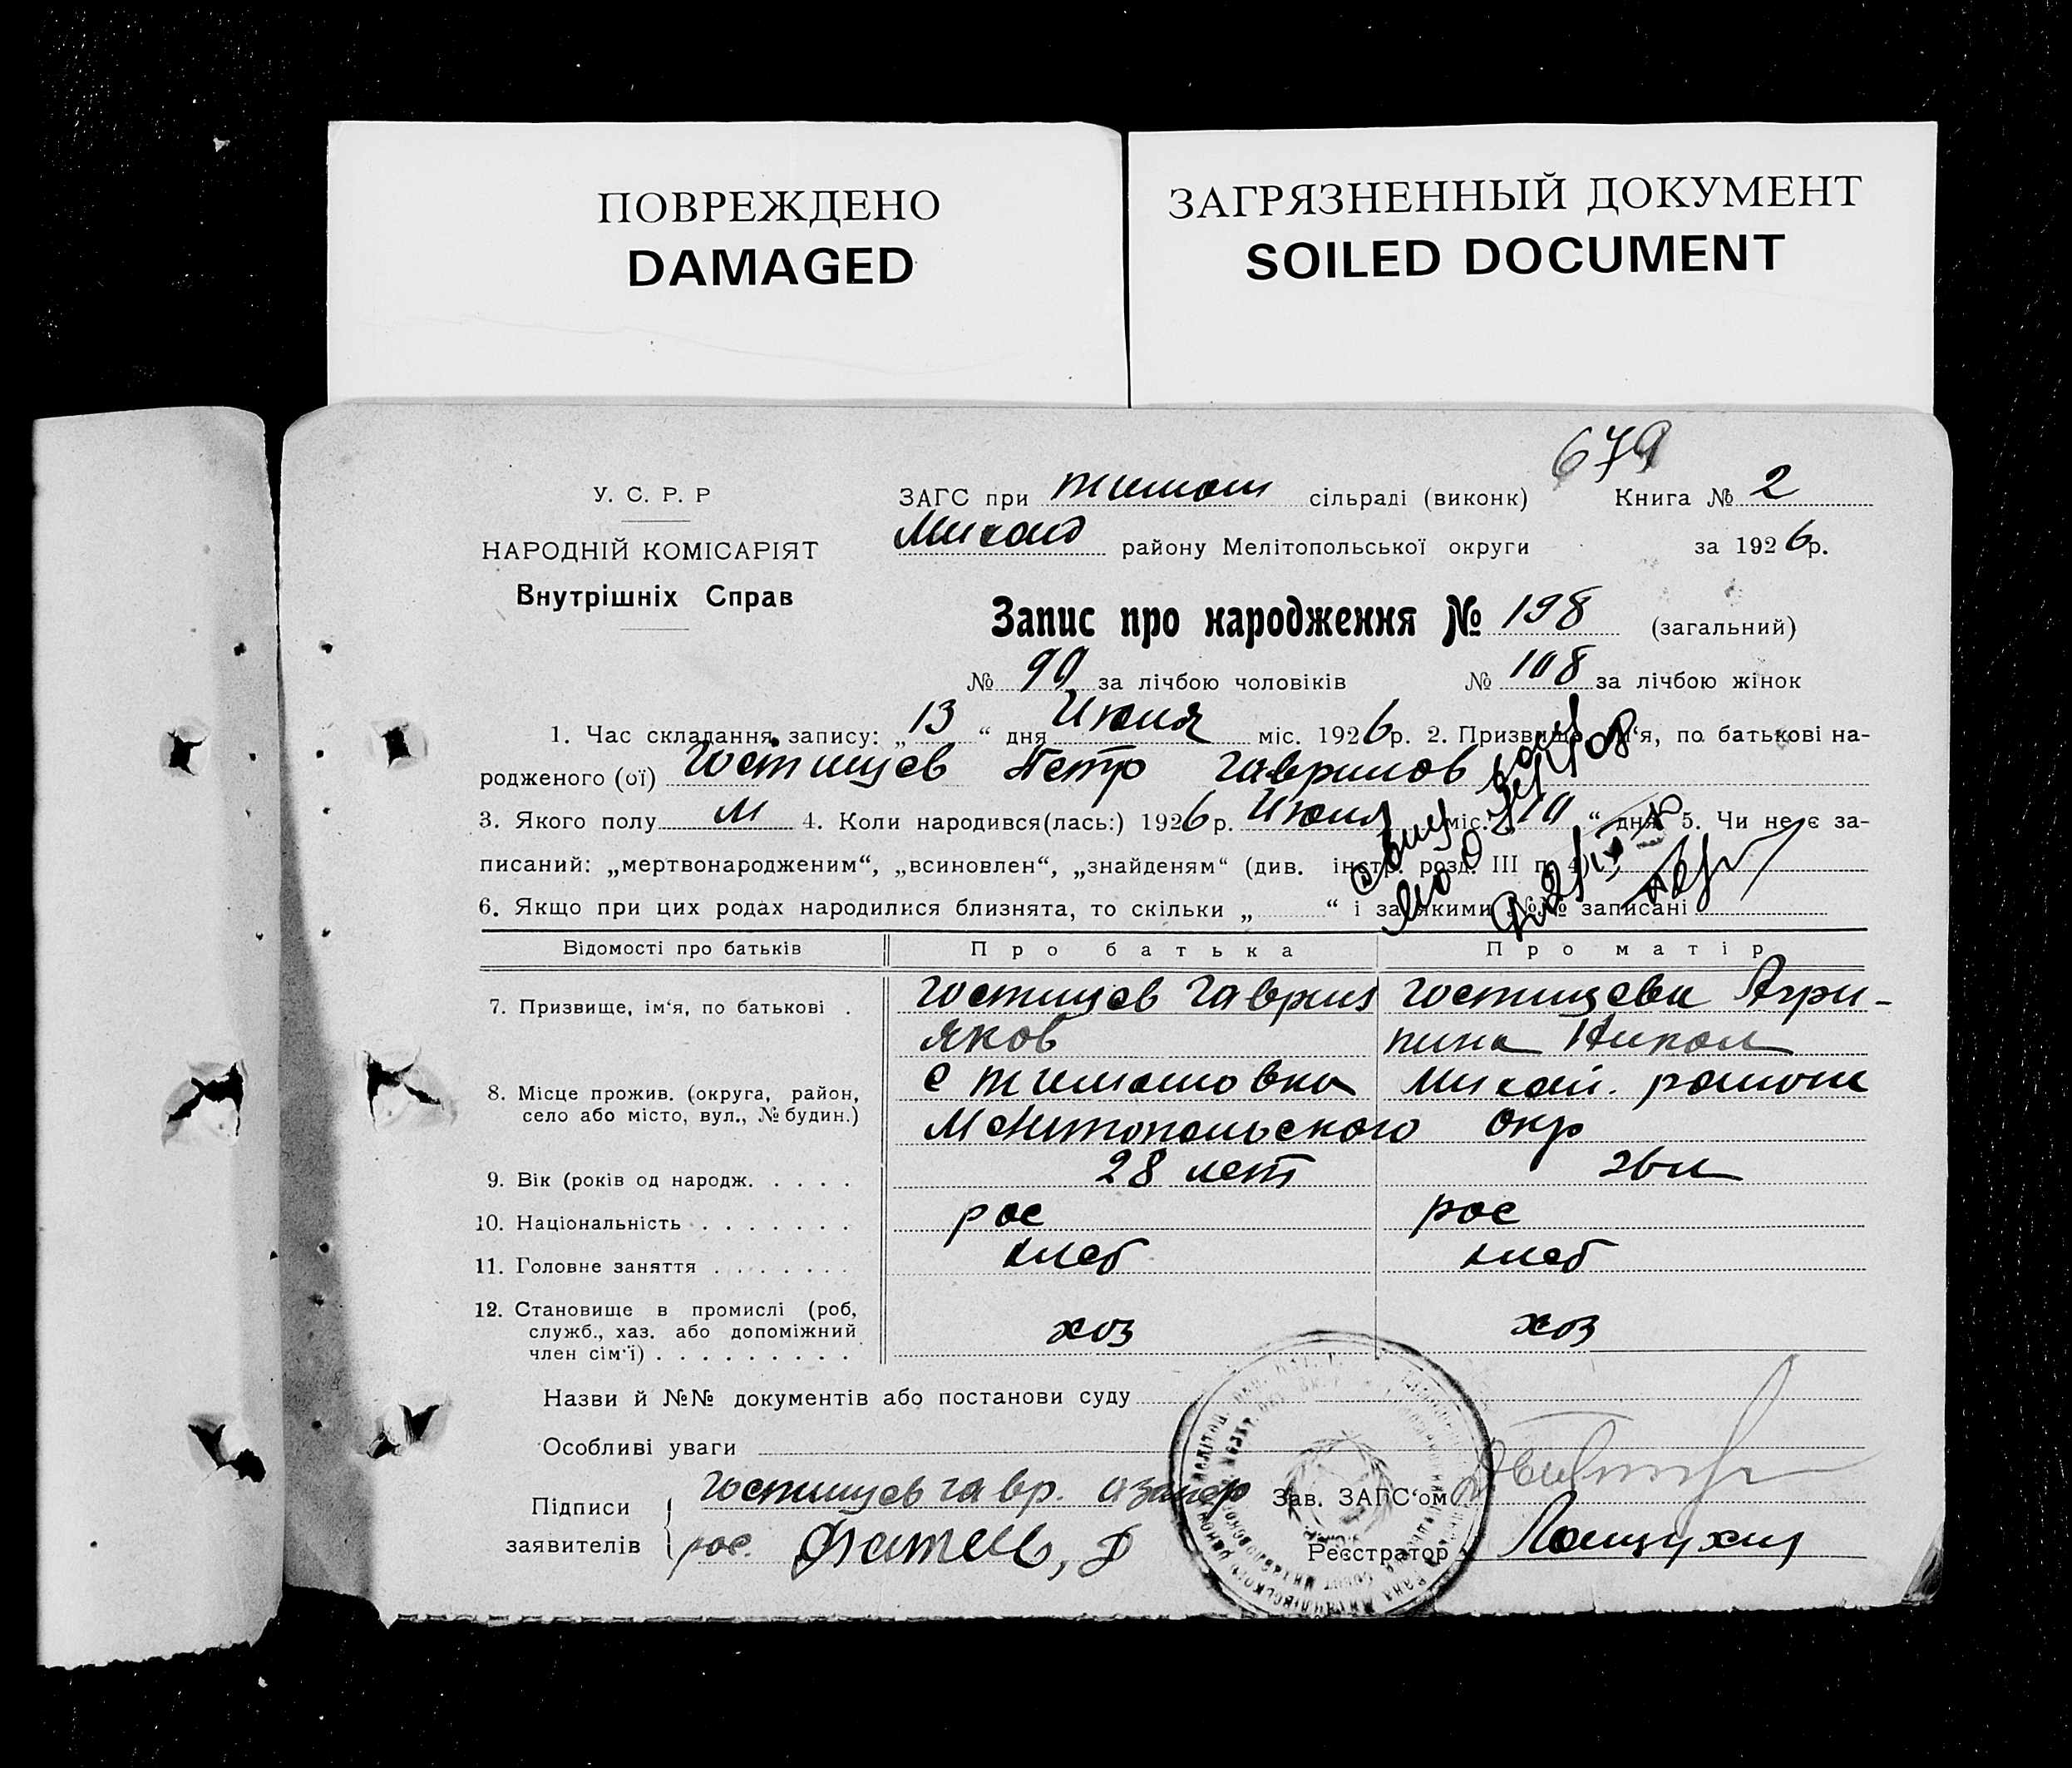 ПОВРЕЖДЕНО
DAMAGED
ЗАГРЯЗНЕННЫЙ ДОКУМЕНТ
SOILED DOCUMENT
679
У. С. Р. Р
НАРОДНІЙ КОМІСАРІЯТ
Внутрішніх Справ
ЗАГС при Тимош сільраді (виконк) Книга № 2
Михайл району Мелітопольської округи за 1926р.
Запис про народження № 198 (загальний)
№ 90 за лічбою чоловіків № 108 за лічбою жінок
1. Час складання запису: „13“ дня Июля міс. 1926р. 2. Призвище, ім‘я, по батькові на-
родженого (ої) Гостищев Петр Гаврилов
3. Якого полу м 4. Коли народився(лась:) 1926р. Июля міс. 10 “ дня 5. Чи не є за-
писаний: „мертвонародженим“, „всиновлен“, „знайденям“ (див. інстр. розд. III п. 4)
6. Якщо при цих родах народилися близнята, то скільки „ “ і за якими №№ записані
Відомості про батьків Про батька Про матір
7. Призвище, ім‘я, по батькові . Гостищев Гаврил Гостищева Агри-
Яков пина Никол
8. Місце прожив. (округа, район, село або місто, вул., № будин.) с Тимошовка Михай. района
Мелитопольского окр
9. Вік (років од народж. . . . . 28 лет
10. Національність . . . . . . . рос рос
11. Головне заняття . . . . . . . хлеб хлеб
12. Становище в промислі (роб,
служб., хаз. або допоміжний
член сім‘ї) . . . . . . . . . хоз хоз
Назви й №№ документів або постанови суду
Особливі уваги
Підписи заявителів Гостищев Гавр. а за нер
рос.
Зав. ЗАГС‘ом
Реєстратор